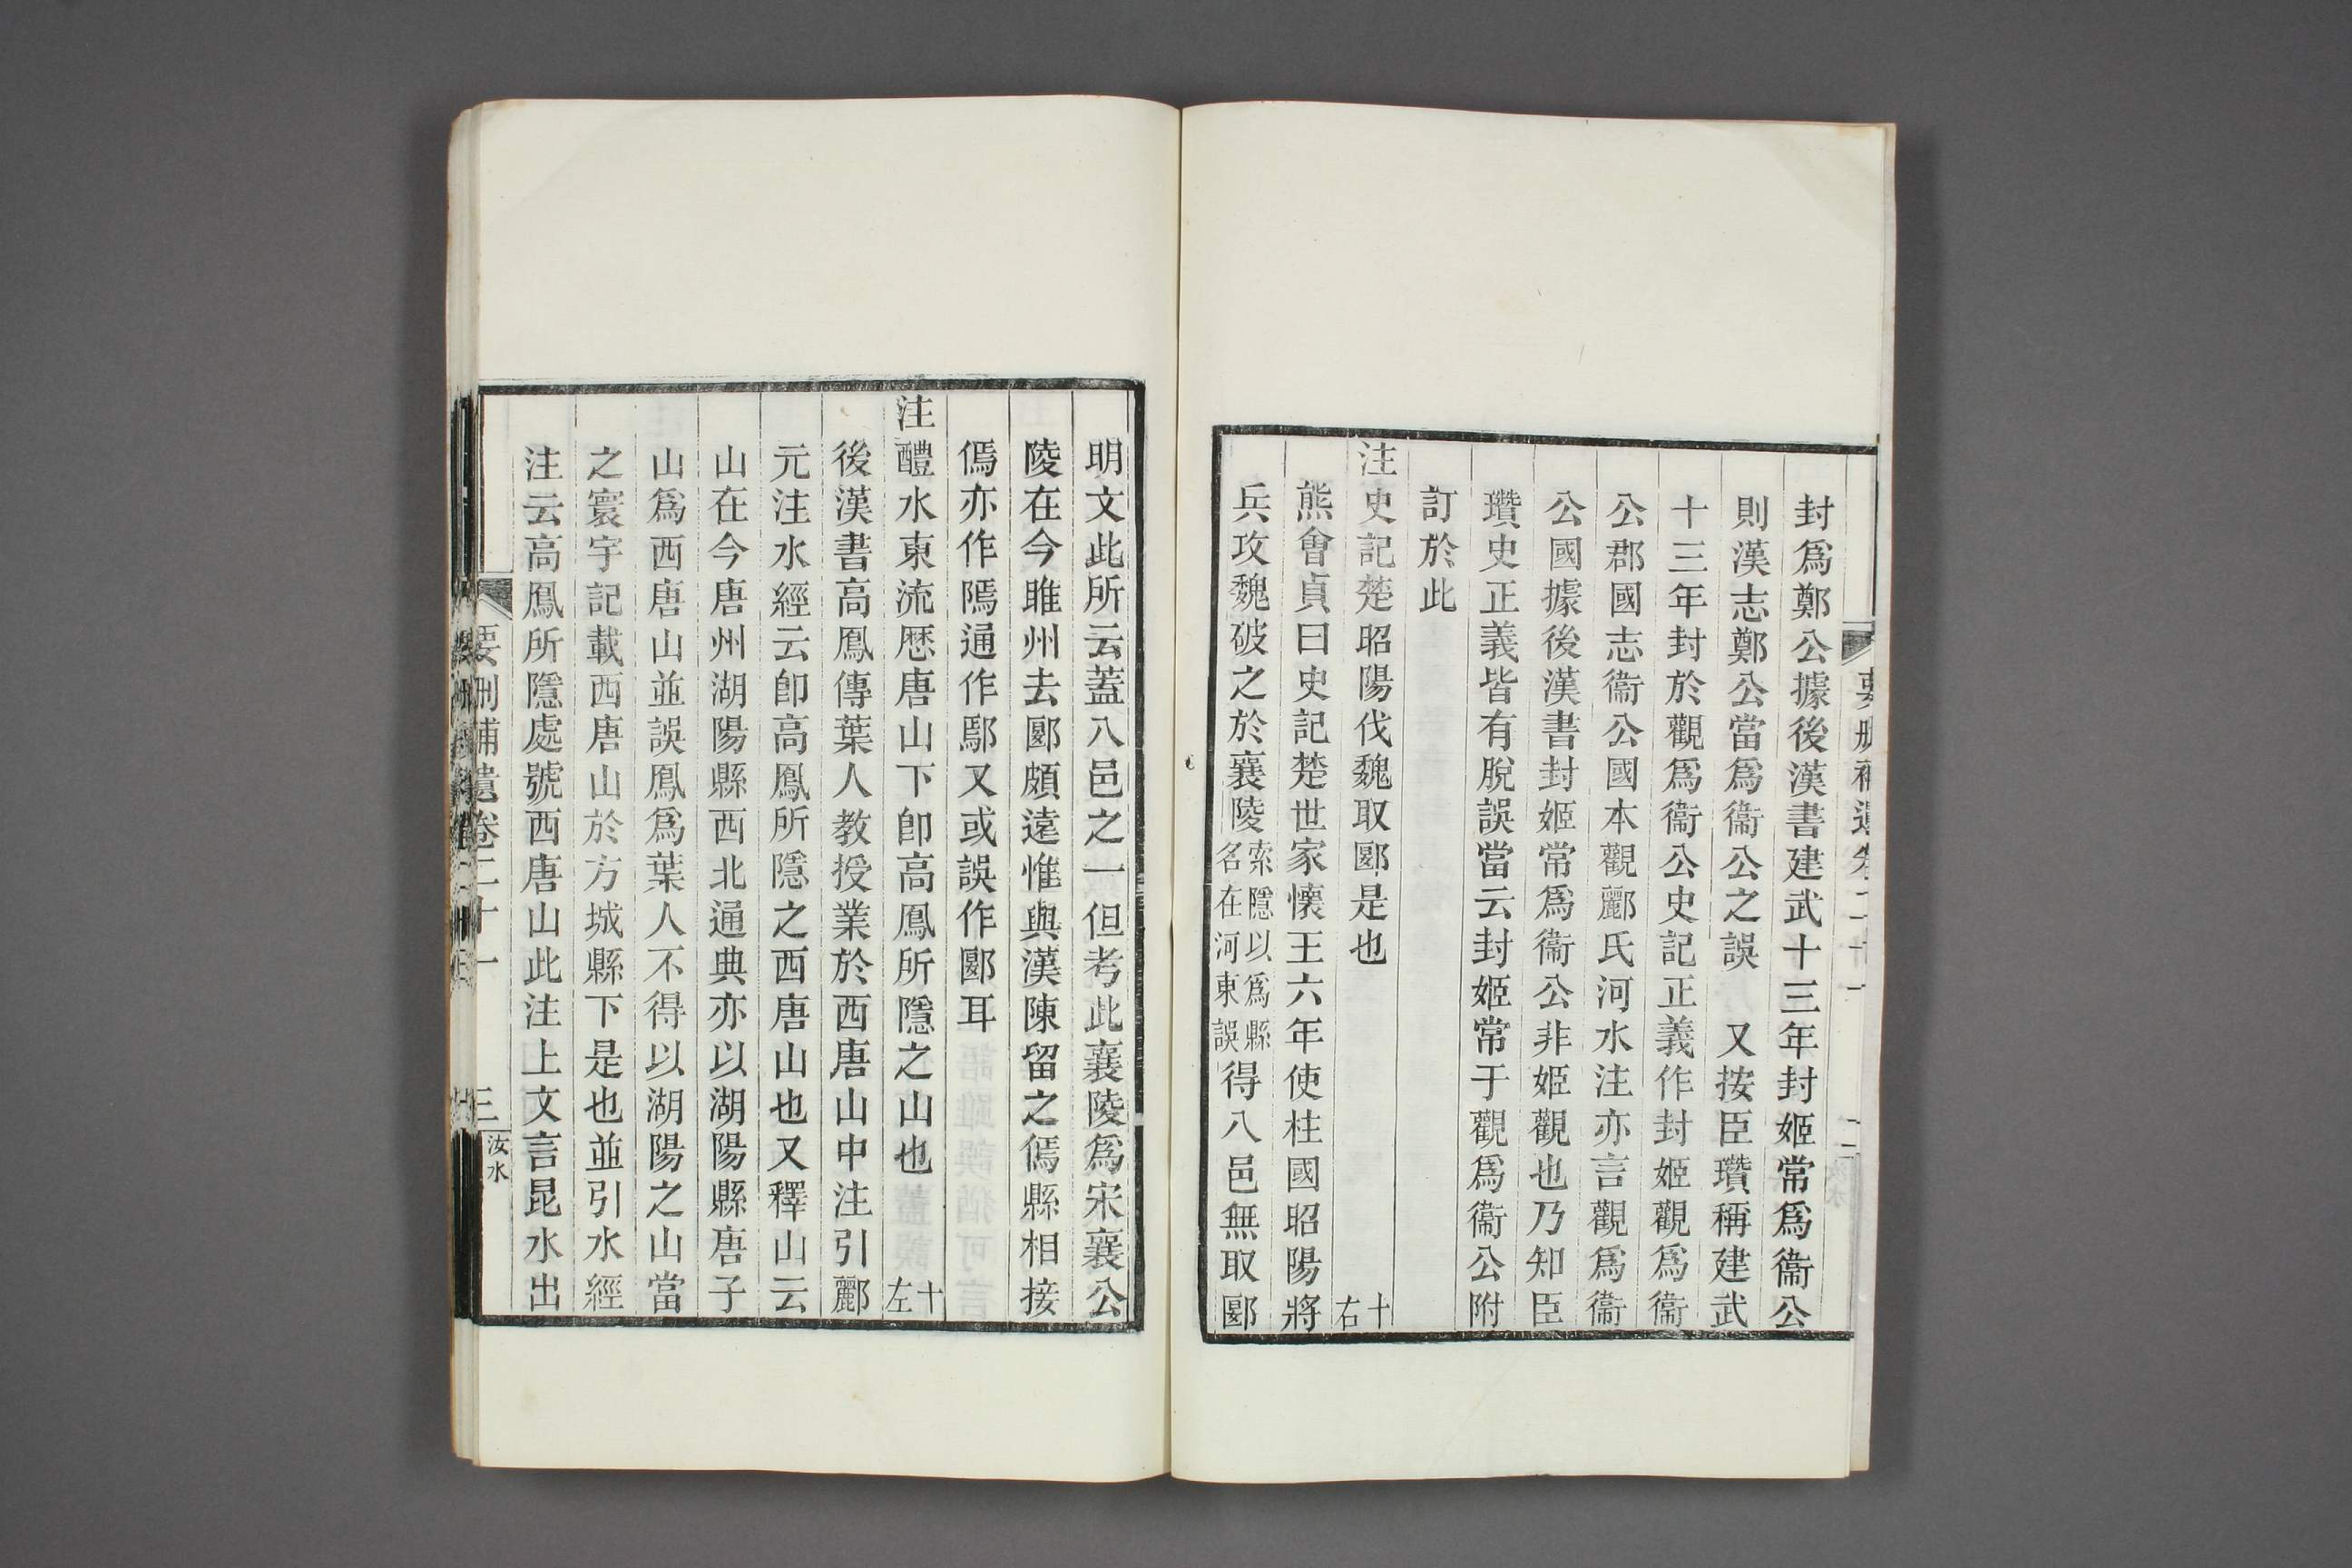 封爲鄭公據後漢書建武十三年封姬常爲衞公
則漢志鄭公當爲衞公之誤　又按臣瓚稱建武
十三年封於觀爲衞公史記正義作封姬觀爲衞
公郡國志衞公國本觀酈氏河水注亦言觀爲衞
公國據後漢書封姬常爲衞公非姬觀也乃知臣
瓚史正義皆有脫誤當云封姬常于觀爲衞公附
訂於此
注史記楚昭陽伐魏取郾是也　十右
熊會貞曰史記楚世家懷王六年使柱國昭陽將
兵攻魏破之於襄陵索隱以爲縣名在河東誤得八邑無取郾
明文此所云蓋八邑之一但考此襄陵爲宋襄公
陵在今睢州去郾頗遠惟與漢陳留之傿縣相接
傿亦作隖通作鄢又或誤作郾耳
注醴水東流歷唐山下卽高鳳所隱之山也　十左
後漢書高鳳傳葉人教授業於西唐山中注引酈
元注水經云卽高鳳所隱之西唐山也又釋山云
山在今唐州湖陽縣西北通典亦以湖陽縣唐子
山爲西唐山並誤鳳爲葉人不得以湖陽之山當
之寰宇記載西唐山於方城縣下是也並引水經
注云高鳳所隱處號西唐山此注上文言昆水出
要刪補遺卷二十一　三　汝水